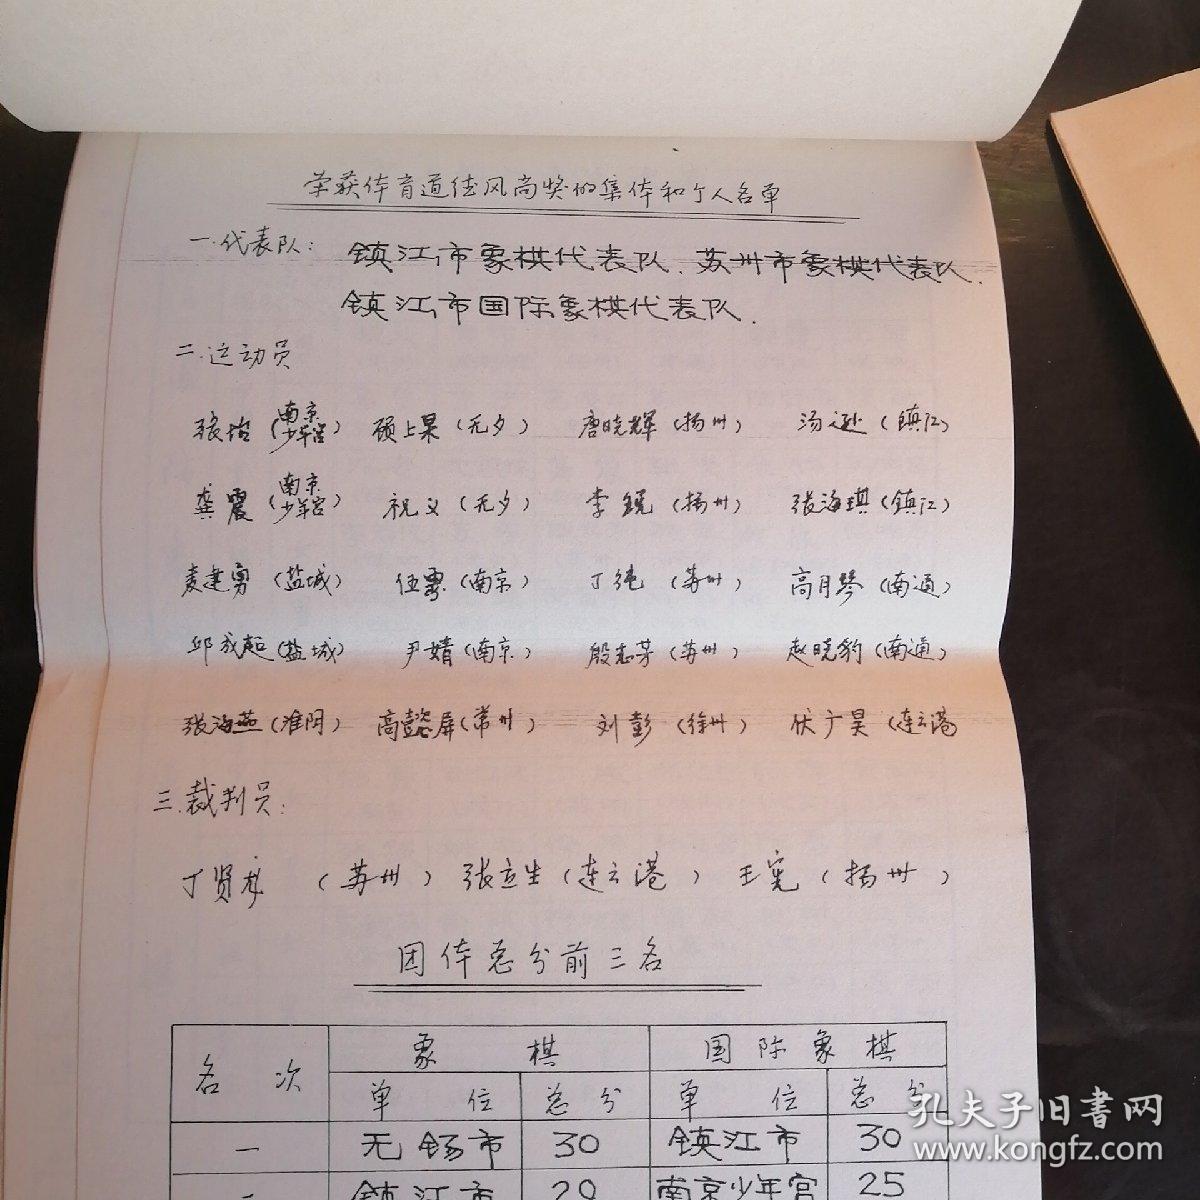 荣获体育道德风尚奖的集体和个人名单
一.代表队: 镇江市象棋代表队、苏州市象棋代表队、
镇江市国际象棋代表队.
二.运动员
张 (南京少年宫) 顾上果(无夕) 唐晓辉(扬州) 汤逊(镇江)
龚震(南京少年宫) 祝义(无夕) 李锐(扬州) 张海琪(镇江)
建勇(盐城) 伍霞(南京) 丁纯(苏州) 高月琴(南通)
邱成起(盐城) 尹婧(南京) 殷志芳(苏州) 赵晓豹(南通)
张海燕(淮阴) 高懿屏(常州) 刘彭(徐州) 伏广昊(连云港)
三.裁判员:
丁贤 (苏州) 张立生(连云港) 王宪(扬州)
团体总分前三名
名次 象棋 国际象棋
单位 总分 单位 总分
一 无锡市 30 镇江市 30
镇江市 20 南京少年宫 25
孔夫子旧书网
www.kongfz.com